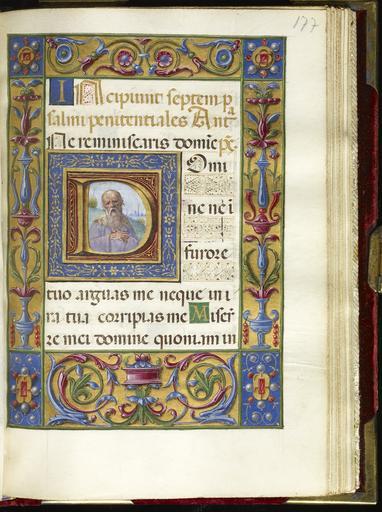 177
Incipiunt septem p
salmi penitentiales Ant
Ne reminiscaris domīe
Domi
ne ne ī
furore
tuo arguas me neque in i
ra tua corripias me Miser
re mei domine quoniam in